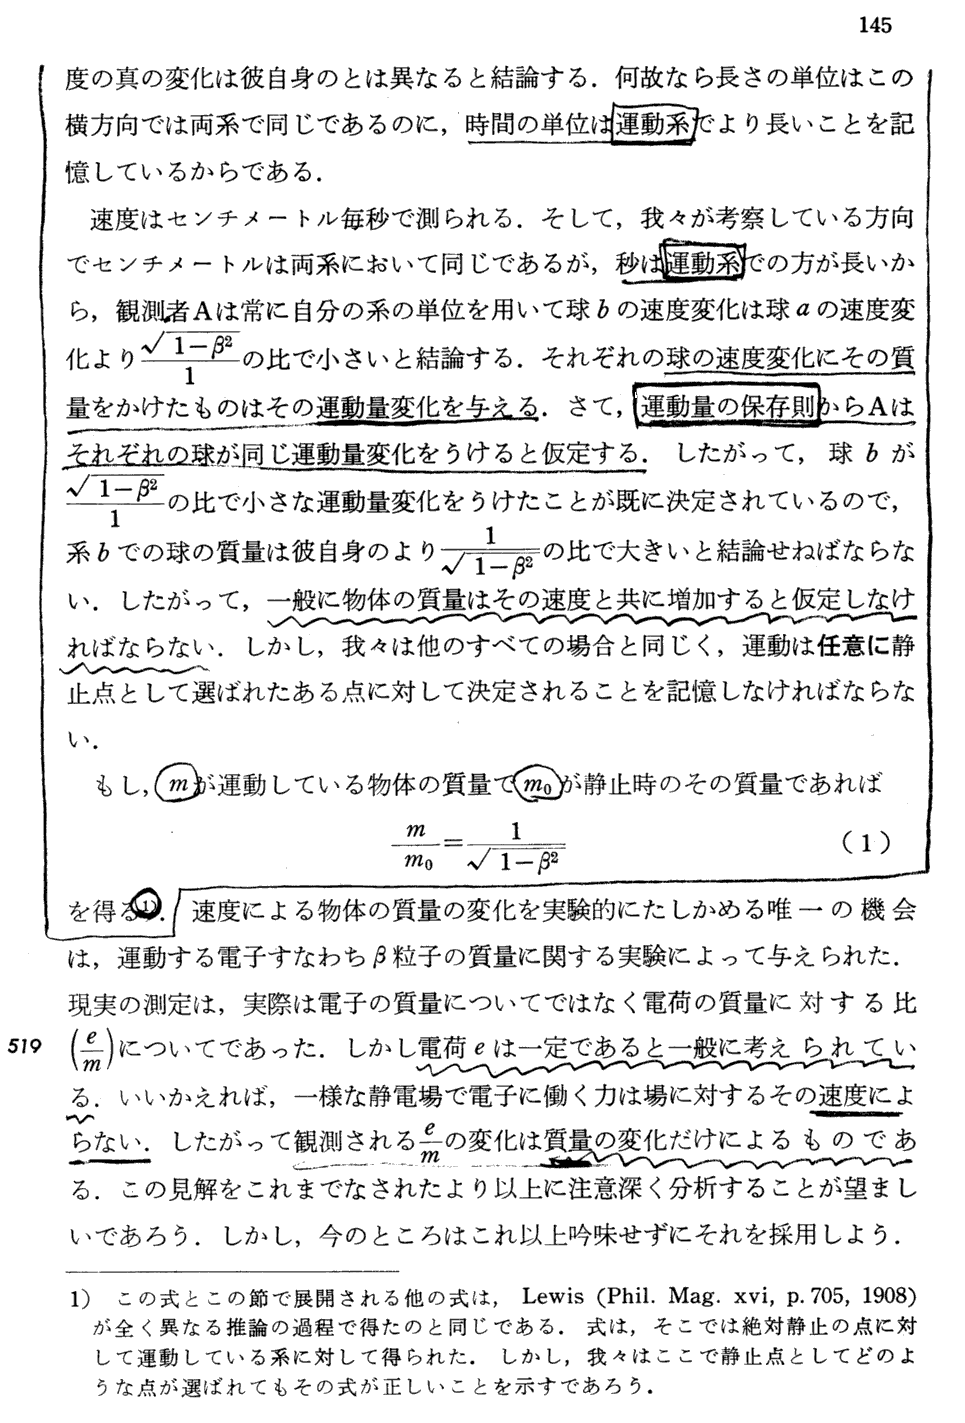 145
度の真の変化は彼自身のとは異なると結論する．何故なら長さの単位はこの
横方向では両系で同じであるのに，時間の単位は運動系でより長いことを記
憶しているからである．
速度はセンチメートル毎秒で測られる．そして，我々が考察している方向
でセンチメートルは両系において同じであるが，秒は運動系での方が長いか
ら，観測者Aは常に自分の系の単位を用いて球 b の速度変化は球 a の速度変
化より √(1－β²)/1 の比で小さいと結論する．それぞれの球の速度変化にその質
量をかけたものはその運動量変化を与える．さて，運動量の保存則からAは
それぞれの球が同じ運動量変化をうけると仮定する．したがって，球 b が
√(1－β²)/1 の比で小さな運動量変化をうけたことが既に決定されているので，
系 b での球の質量は彼自身のより 1/√(1－β²) の比で大きいと結論せねばならな
い．したがって，一般に物体の質量はその速度と共に増加すると仮定しなけ
ればならない．しかし，我々は他のすべての場合と同じく，運動は任意に静
止点として選ばれたある点に対して決定されることを記憶しなければならな
い．
もし，m が運動している物体の質量で m₀ が静止時のその質量であれば
m/m₀ = 1/√(1－β²) （1）
を得る1)．速度による物体の質量の変化を実験的にたしかめる唯一の機会
は，運動する電子すなわち β 粒子の質量に関する実験によって与えられた．
現実の測定は，実際は電子の質量についてではなく電荷の質量に対する比
519 (e/m) についてであった．しかし電荷 e は一定であると一般に考えられてい
る．いいかえれば，一様な静電場で電子に働く力は場に対するその速度によ
らない．したがって観測される e/m の変化は質量の変化だけによるものであ
る．この見解をこれまでなされたより以上に注意深く分析することが望まし
いであろう．しかし，今のところはこれ以上吟味せずにそれを採用しよう．
1) この式とこの節で展開される他の式は， Lewis (Phil. Mag. xvi, p. 705, 1908)
が全く異なる推論の過程で得たのと同じである．式は，そこでは絶対静止の点に対
して運動している系に対して得られた．しかし，我々はここで静止点としてどのよ
うな点が選ばれてもその式が正しいことを示すであろう．